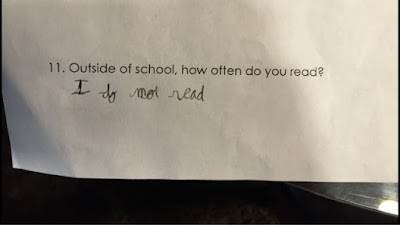 11. Outside of school, how often do you read?
I do not read